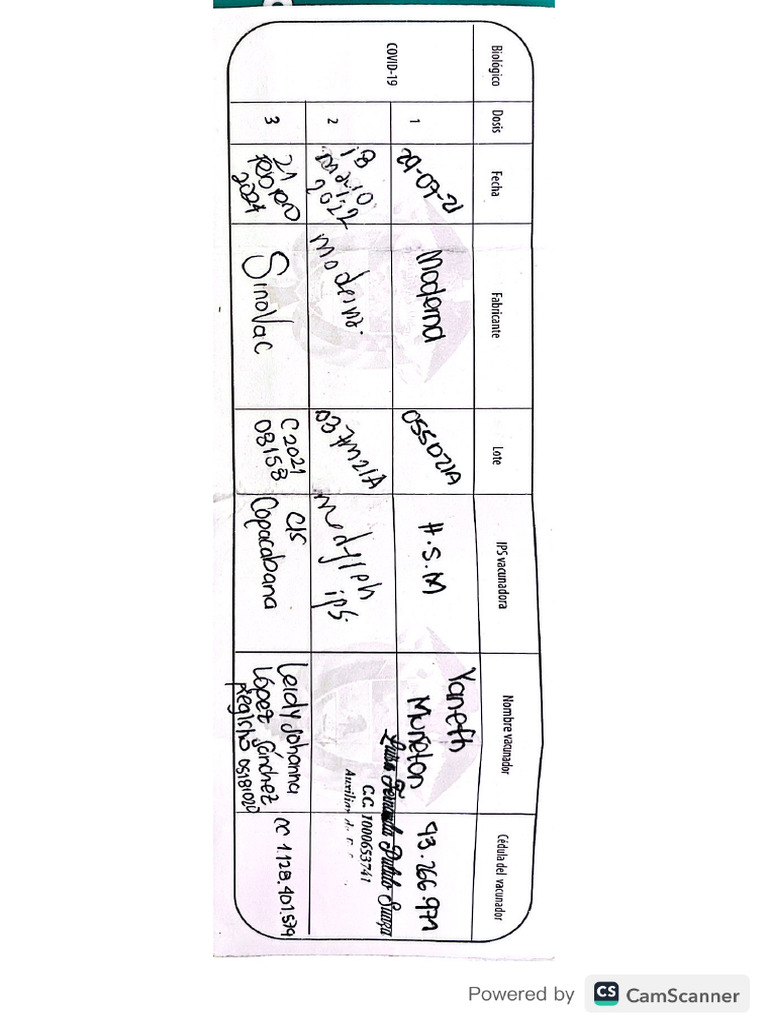 Biológico Dosis Fecha Fabricante Lote IPS vacunadora Nombre vacunador Cédula del vacunador
COVID-19
1 29-07-21 Moderna 055D21A H.S.M Yaneth
Muñeton 43.266.971
2 18
marzo
2022 moderna. ips.
Luisa Fernanda Pulido
C.C. 1000653741
Auxiliar
3 21
febrero
2024 Sinovac C2021
08158 CIS
Copacabana Leidy Johanna
López Sánchez
Registro 05181020 CC 1.128.401.579
Powered by CS CamScanner